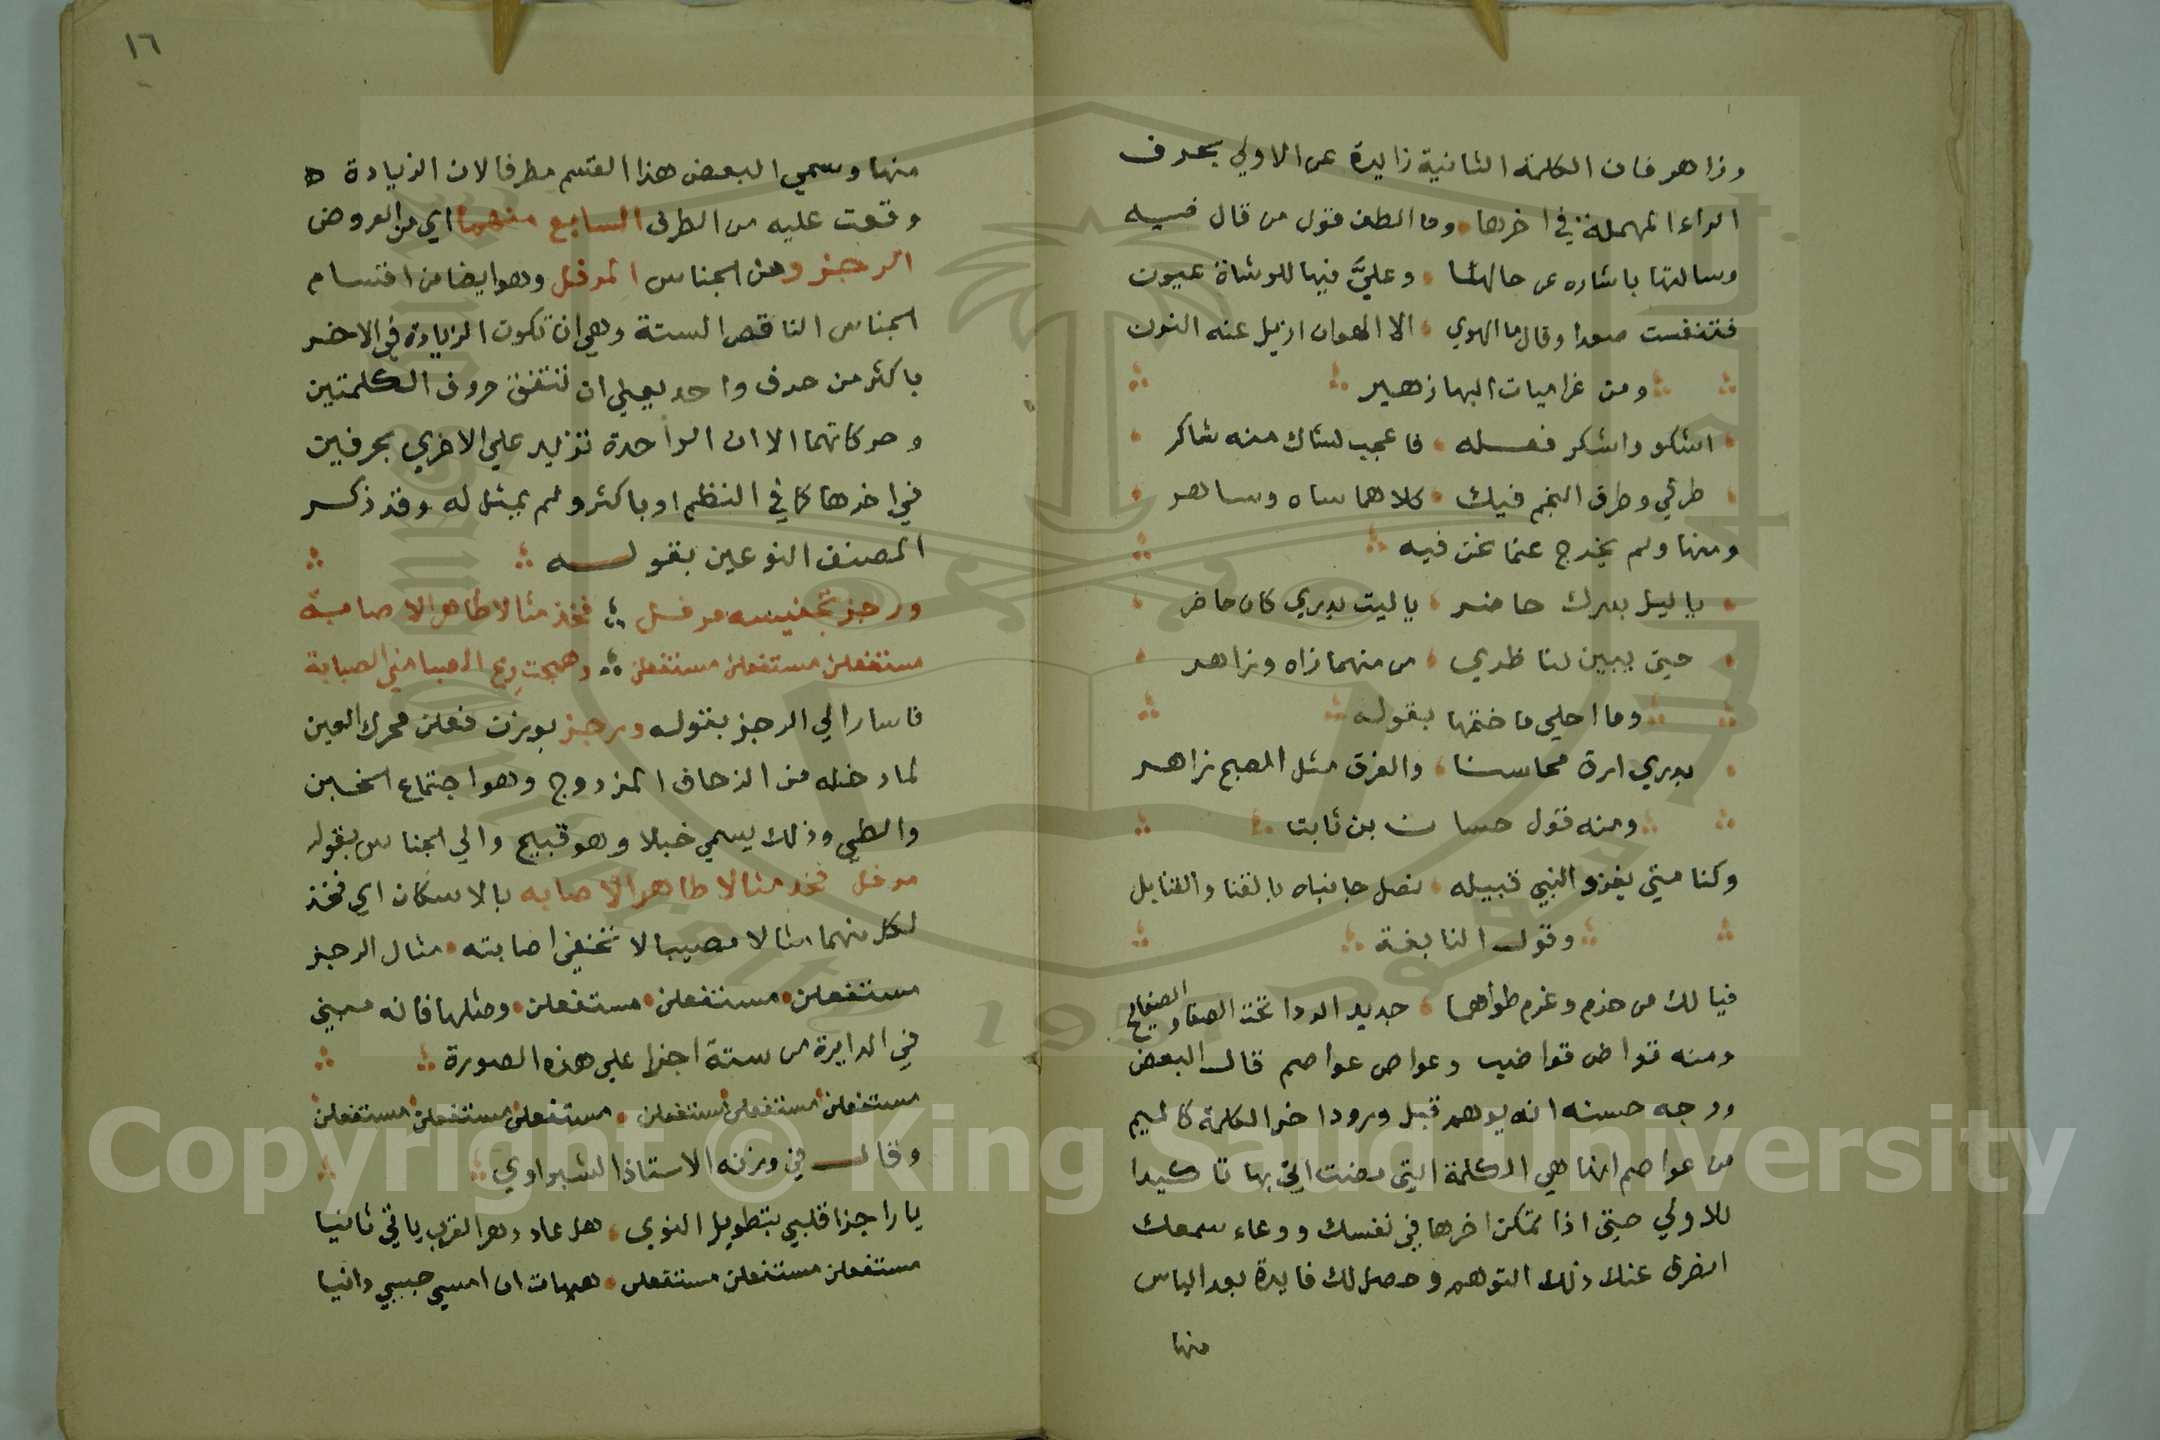 وزاهر فان الكلمة الثانية زايدة عن الاولي بحرف
الراء المهملة في اخرها وما الطف قول من قال فيه
وسالتها باشاره عن حالها وعليَّ فيها للوشاة عيون
فتنفست صعدا وقال ما الهوي الا الهوان ازيل عنه النون
ومن غراميات البها زهير
اشكو واشكر فعله فاعجب لشاك منه شاكر
طرفي وطرف النجم فيك كلاهما ساه وساهر
ومنها ولم يخرج عما نحن فيه
يا ليل بدرك حاضر يا ليت بدري كان حاضر
حتي يبين لنا ظري من منهما زاه وزاهر
وما احلي ما ختمها بقوله
بدري ارق محاسنا والفرق مثل الصبح زاهر
ومنه قول حسان بن ثابت
وكنا متي يغزو النبي قبيله نصل جانباه بالقنا والقنابل
وقول النابغة
فيالك من حزم وعزم طواهما جديد الردا تحت الصفا والصفايح
ومنه قواض قواضب وعواص عواصم قال البعض
ووجه حسنه انه يوهم قبل ورود اخر الكلمة كالميم
من عواصم انها هي الكلمة التي مضت اتي بها تاكيدا
للاولي حتي اذا تمكن اخرها في نفسك ووعاء سمعك
انصرف عنك ذلك التوهم وحصل لك فايدة بعد الياس
منها
١٦
منها وسمي البعض هذا القسم مطرفا لان الزيادة
وقعت عليه من الطرف السابع منهما اي من العروض
الرجز ومن الجناس المرفل وهو ايضا من اقتسام
الجناس الناقص الستة وهي ان تكون الزيادة في الاخر
باكثر من حرف واحد يعني ان تتفق حروف الكلمتين
وحركاتهما الا ان الواحدة تزيد علي الاخري بحرفين
في اخرها كما في النظم او باكثر ولم يمثل له وقد ذكر
المصنف النوعين بقوله
ورجز تجنيسه مرفل فخذ مثالا ظاهر الاصابة
مستفعلن مستفعلن مستفعلن وهيجت ريح الصبا مني الصبابة
فاشار الي الرجز بقوله ورجز بوزن فعلن محرك العين
لما دخله من الزحاف المزدوج وهو اجتماع الخبن
والطي وذلك يسمي خبلا وهو قبيح والي الجناس بقوله
مرفل فخذ مثالا ظاهر الاصابه بالاسكان اي فخذ
لكل منهما مثالا مصيبا لا تختفي اصابته مثال الرجز
مستفعلن مستفعلن مستفعلن ومثلها فانه مبني
في الدايرة من ستة اجزا علي هذه الصورة
مستفعلن مستفعلن مستفعلن مستفعلن مستفعلن مستفعلن
وقال في وزنه الاستاذ الشبراوي
يا راجزا قلبي بتطويل النوي هل عاد دهر القرب ياتي ثانيا
مستفعلن مستفعلن مستفعلن هيهات ان امسي حبيبي دانيا
Copyright © King Saud University